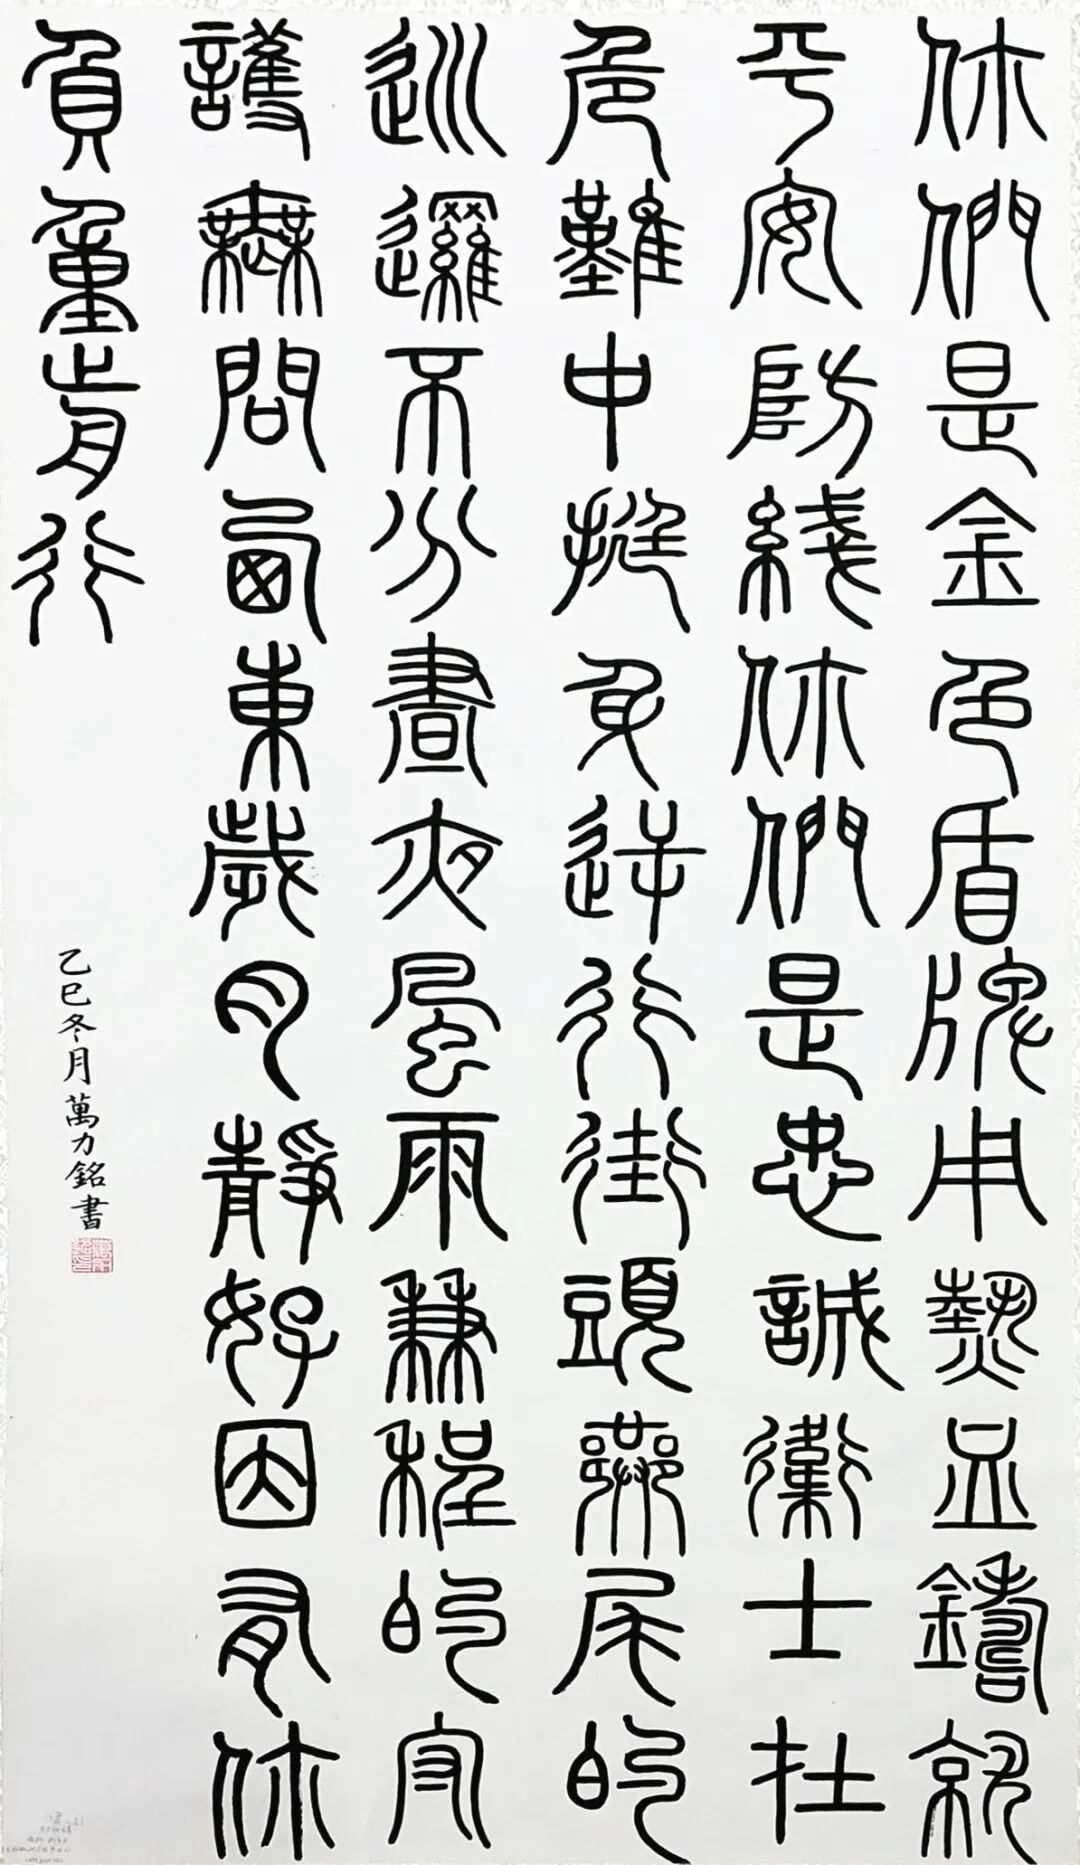 你們是金色盾牌用熱血鑄就
平安防綫你們是忠誠衛士在
危難中挺身逆行街頭巷尾的
巡邏不分晝夜風雨兼程的守
護無問西東歲月靜好因有你
負重前行
乙巳冬月萬力銘書